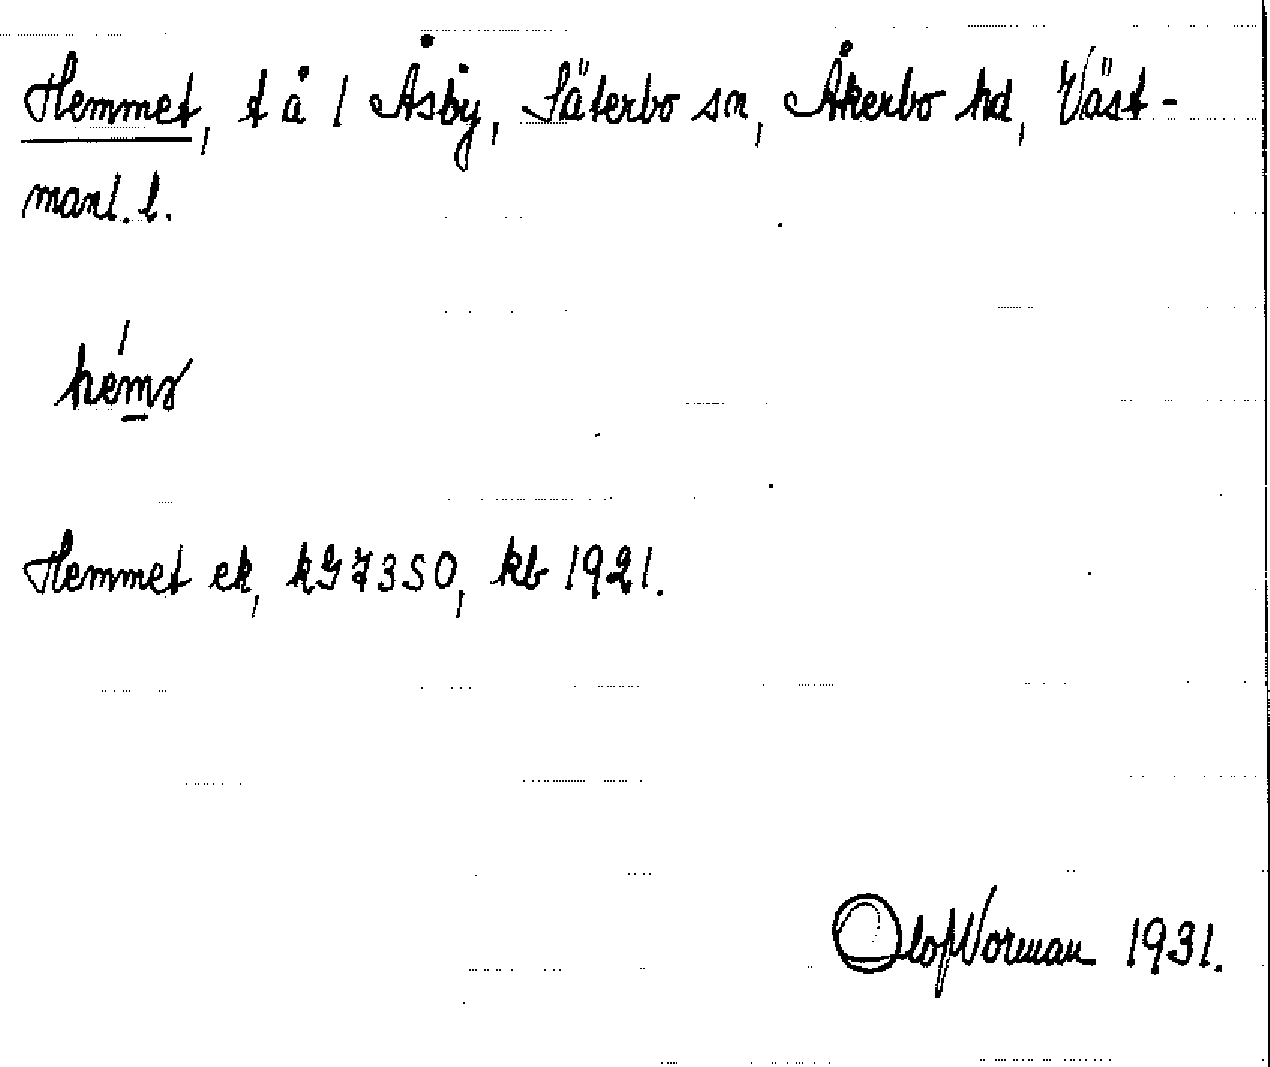 Hemmet, t å 1 Åsby, Säterbo sn, Åkerbo hd, Väst-
manl. l.
Hemmet ek, kG73S0, kb 1921.
Olof Norman 1931.